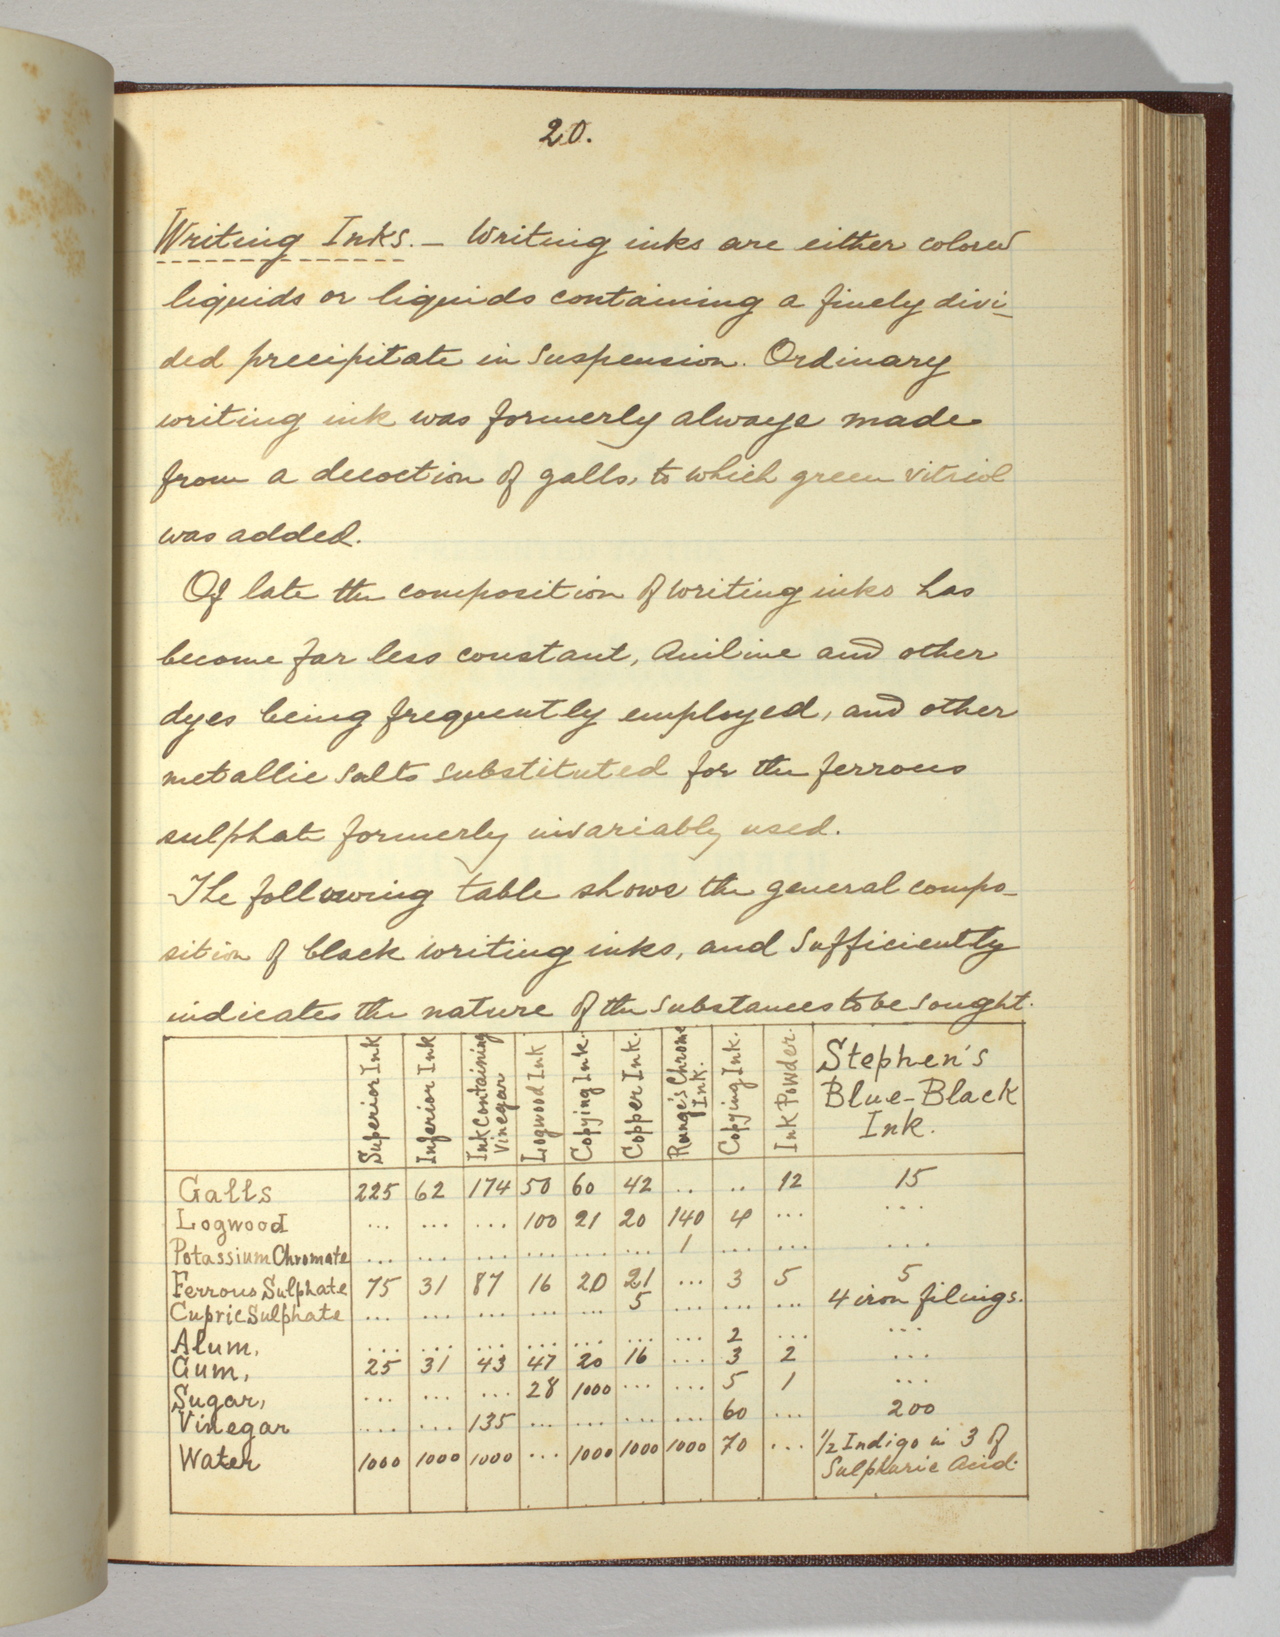 20.
Writing Inks. – Writing inks are either colored
liquids or liquids containing a finely divi-
ded precipitate in suspension. Ordinary
writing ink was formerly always made
from a decoction of galls, to which green vitriol
was added.
Of late the composition of writing inks has
become far less constant, Aniline and other
dyes being frequently employed, and other
metallic salts substituted for the ferrous
sulphate formerly invariably used.
The following table shows the general compo-
sition of black writing inks, and sufficiently
indicates the nature of the substances to be sought.
Superior Ink
Inferior Ink
Ink Containing
Vinegar
Logwood Ink
Copying Ink.
Copper Ink.
Runge's Chrome
Ink.
Copying Ink.
Ink Powder.
Stephen's
Blue-Black
Ink.
Galls 225 62 174 50 60 42 .. .. 12 15
Logwood ... ... ... 100 21 20 140 4 ... ...
Potassium Chromate ... ... ... ... ... ... 1 ... ... ...
Ferrous Sulphate 75 31 87 16 20 21 ... 3 5 5
Cupric Sulphate ... ... ... ... ... 5 ... ... ... 4 iron filings.
Alum, ... ... ... ... ... ... ... 2 ... ...
Gum, 25 31 43 47 20 16 ... 3 2 ...
Sugar, ... ... ... 28 1000 ... ... 5 1 ...
Vinegar ... ... 135 ... ... ... ... 60 ... 200
Water 1000 1000 1000 ... 1000 1000 1000 70 ... ½ Indigo in 3 of
Sulphuric Acid.